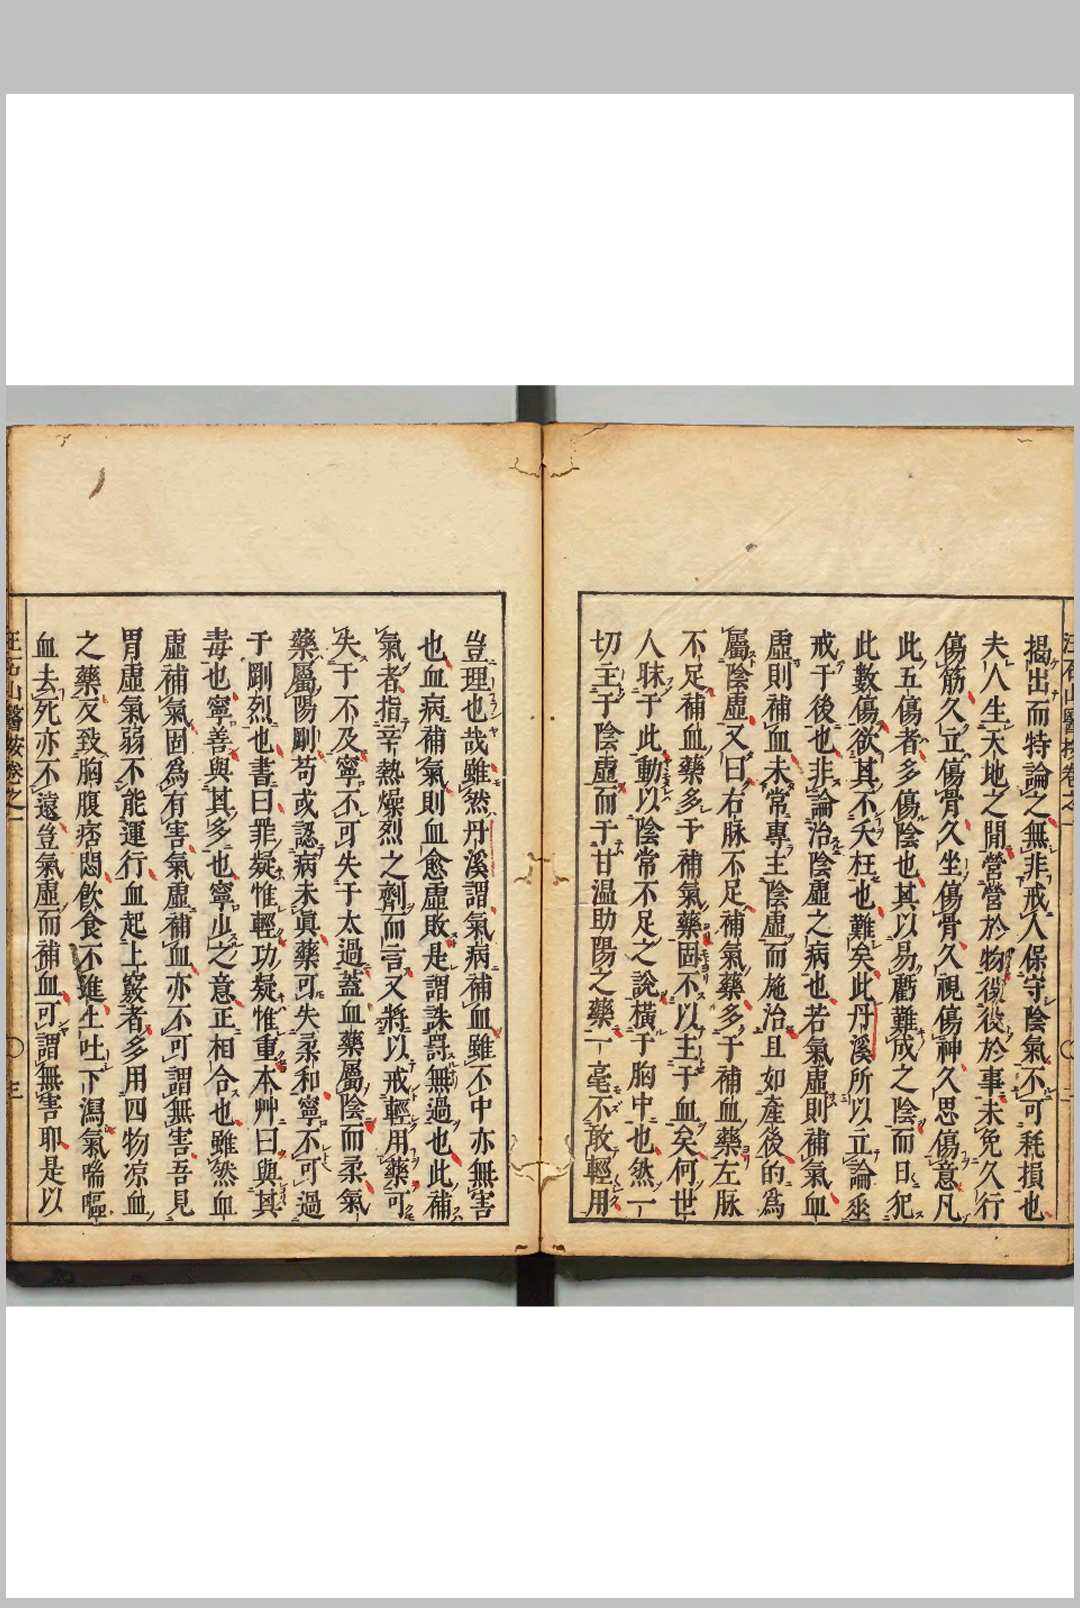 汪石山醫按卷之一
揭出而特論之無非戒人保守陰氣不可耗損也
夫人生天地之間營營於物役役於事未免久行
傷筋久立傷骨久坐傷骨久視傷神久思傷意凡
此五傷者多傷陰也其以易虧難成之陰而日犯
此數傷欲其不夭枉也難矣此丹溪所以立論垂
戒于後也非論治陰虛之病也若氣虛則補氣血
虛則補血未常專主陰虛而施治且如產後的爲
屬陰虛又曰右脉不足補氣藥多于補血藥左脉
不足補血藥多于補氣藥固不以主于血矣何世
人昧于此動以陰常不足之說橫于胸中也然一
切主于陰虛而于甘温助陽之藥一毫不敢輕用
豈理也哉雖然丹溪謂氣病補血雖不中亦無害
也血病補氣則血愈虛敗是謂誅罰無過也此補
氣者指辛熱燥烈之劑而言又將以戒輕用藥可
失于不及寧不可失于太過蓋血藥屬陰而柔氣
藥屬陽剛苟或認病未眞藥可失柔和寧不可過
于剛烈也書曰罪疑惟輕功疑惟重本艸曰與其
毒也寧善與其多也寧少之意正相合也雖然血
虛補氣固爲有害氣虛補血亦不可謂無害吾見
胃虛氣弱不能運行血起上竅者多用四物凉血
之藥反致胸腹痞悶飮食不進上吐下瀉氣喘嘔
血去死亦不遠豈氣虛而補血可謂無害耶是以
汪石山醫按卷之一
三